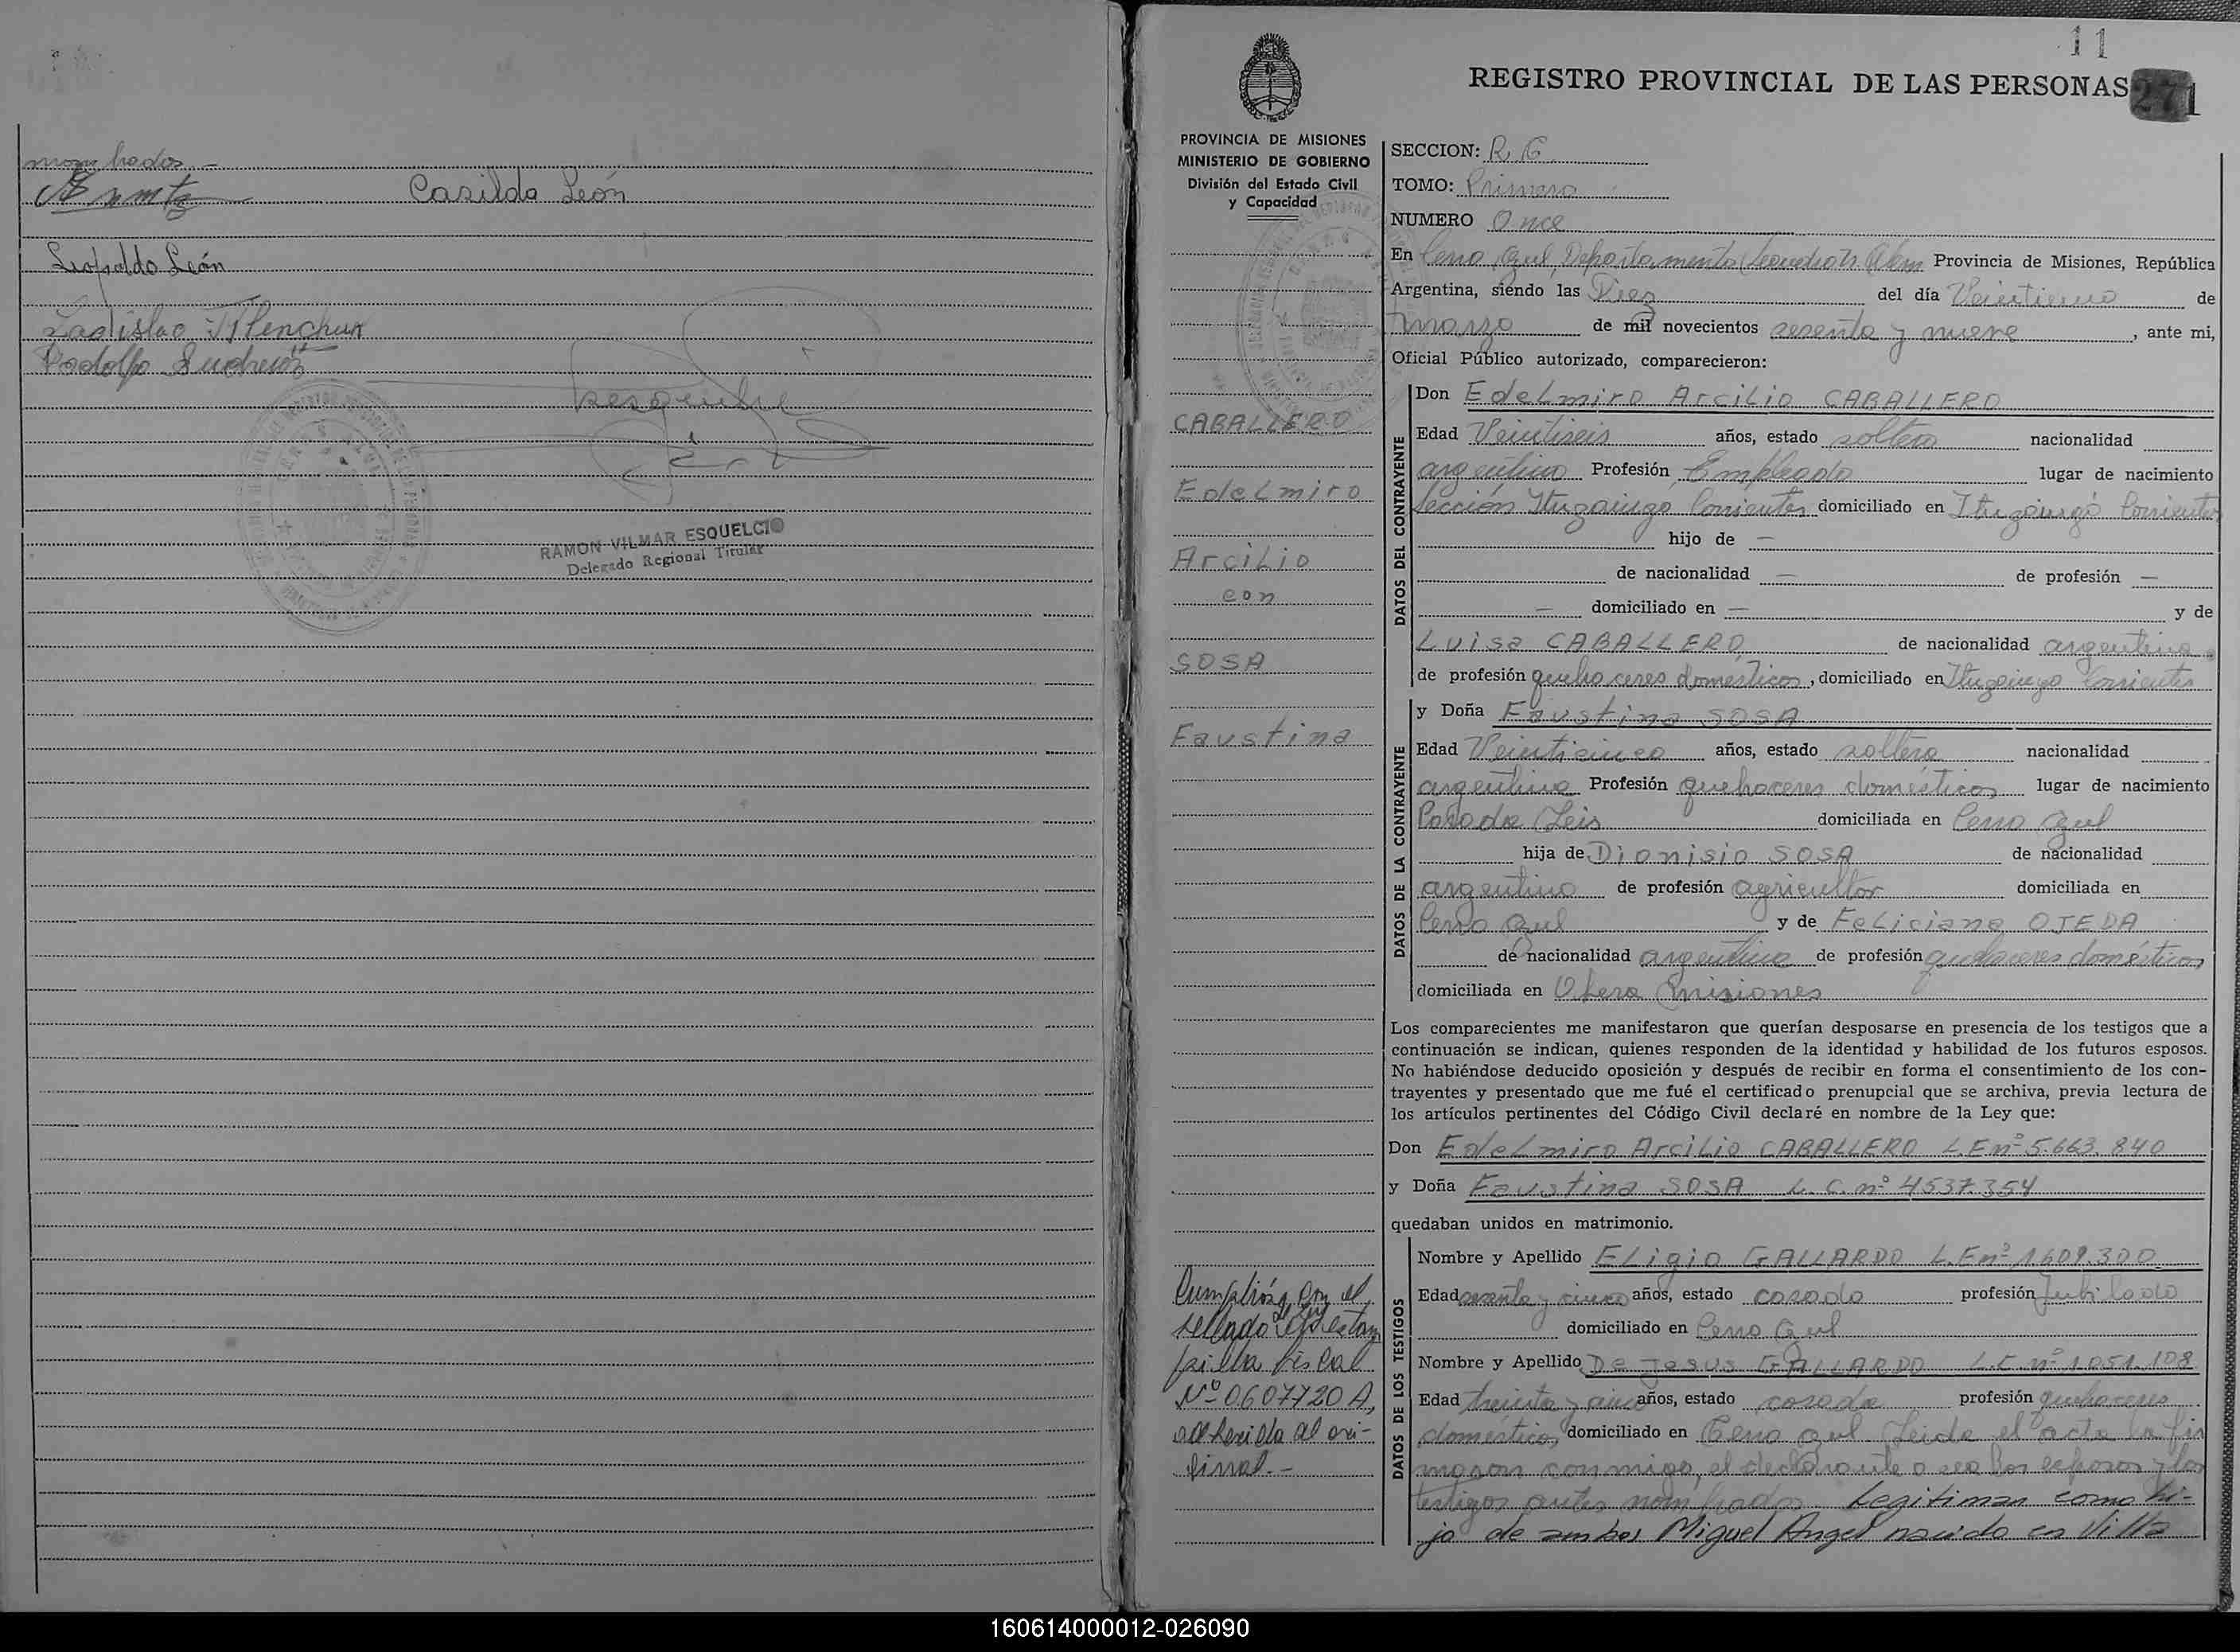 nombrados –
Casilda León
Leopoldo León
Ladislao Ilenchuk
Rodolfo
RAMON VILMAR ESQUELCIO
Delegado Regional Titular
11
REGISTRO PROVINCIAL DE LAS PERSONAS
271
PROVINCIA DE MISIONES
MINISTERIO DE GOBIERNO
División del Estado Civil
y Capacidad
CABALLERO
Edelmiro
Arcilio
con
SOSA
Faustina
Cumplióse con el
sellado Ley estam
pilla fiscal
Nº 0607720 A,
adherida al ori-
ginal.–
SECCION: R. G.
TOMO: Primero
NUMERO Once
En Cerro Azul, Departamento Leandro N. Alem Provincia de Misiones, República
Argentina, siendo las Diez del día Veintiuno de
marzo de mil novecientos sesenta y nueve, ante mi,
Oficial Público autorizado, comparecieron:
DATOS DEL CONTRAYENTE
Don Edelmiro Arcilio CABALLERO
Edad Veintiseis años, estado soltero nacionalidad
argentino Profesión Empleado lugar de nacimiento
Sección Ituzaingo Corrientes domiciliado en Ituzaingó Corrientes
hijo de —
de nacionalidad — de profesión —
— domiciliado en — y de
Luisa CABALLERO de nacionalidad argentina
de profesión quehaceres domésticos, domiciliado en Ituzaingo Corrientes
DATOS DE LA CONTRAYENTE
y Doña Faustina SOSA
Edad Veinticinco años, estado soltera nacionalidad
argentina Profesión quehaceres domésticos lugar de nacimiento
Picada Seis domiciliada en Cerro Azul
hija de Dionisio SOSA de nacionalidad
argentino de profesión agricultor domiciliada en
Cerro Azul y de Feliciana OJEDA
de nacionalidad argentina de profesión quehaceres domésticos
domiciliada en Obera Misiones
Los comparecientes me manifestaron que querían desposarse en presencia de los testigos que a
continuación se indican, quienes responden de la identidad y habilidad de los futuros esposos.
No habiéndose deducido oposición y después de recibir en forma el consentimiento de los con-
trayentes y presentado que me fué el certificado prenupcial que se archiva, previa lectura de
los artículos pertinentes del Código Civil declaré en nombre de la Ley que:
Don Edelmiro Arcilio CABALLERO L.E nº 5.663.840
y Doña Faustina SOSA L.C. nº 4537.354
quedaban unidos en matrimonio.
DATOS DE LOS TESTIGOS
Nombre y Apellido Eligio GALLARDO L.E nº 1.609.300
Edad sesenta y cinco años, estado casado profesión Jubilado
domiciliado en Cerro Azul
Nombre y Apellido De Jesus GALLARDO L.C. nº 1.051.108
Edad treinta y cinco años, estado casada profesión quehaceres
domésticos domiciliado en Cerro Azul Leida el acta la fir
maron conmigo, el declarante o sea los esposos y los
testigos antes nombrados. Legitiman como hi-
jo de ambos Miguel Angel nacido en Villa
160614000012-026090